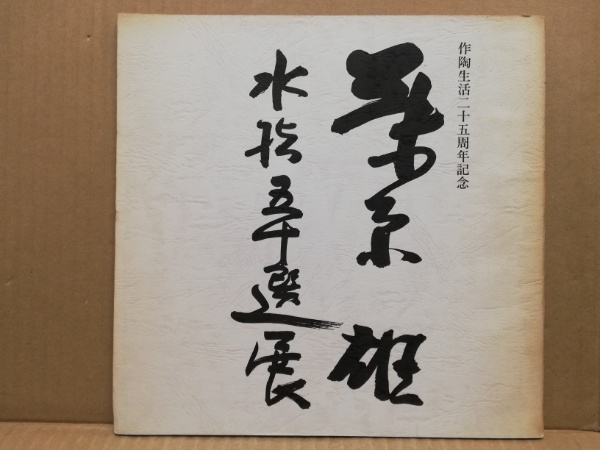 作陶生活二十五周年記念
藤原雄
水指五十選展